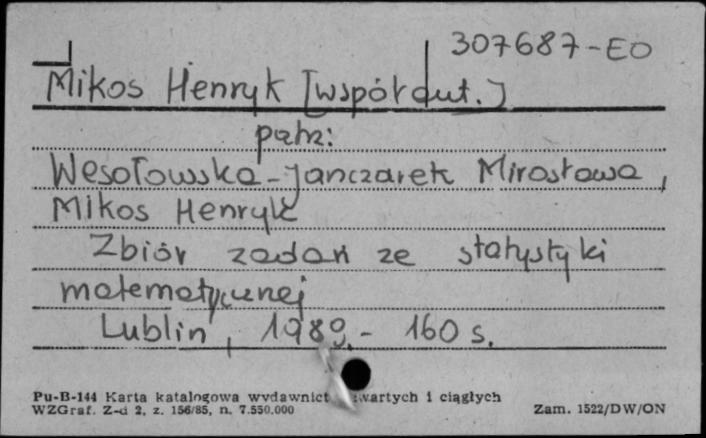 307687-EO
Mikos Henryk [współaut.]
patrz:
Wesołowska-Janczarek Mirosława,
Mikos Henryk
Zbiór zadań ze statystyki
matematycznej
Lublin, 1989.- 160 s.
Pu-B-144 Karta katalogowa wydawnict zwartych i ciągłych
WZGraf. Z-d 2, z. 156/85, n. 7.550.000
Zam. 1522/DW/ON